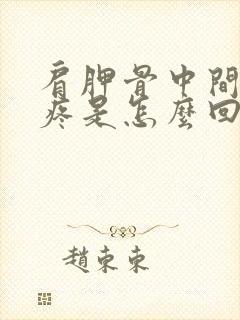 肩胛骨中間
疼是怎麼回
趙東東